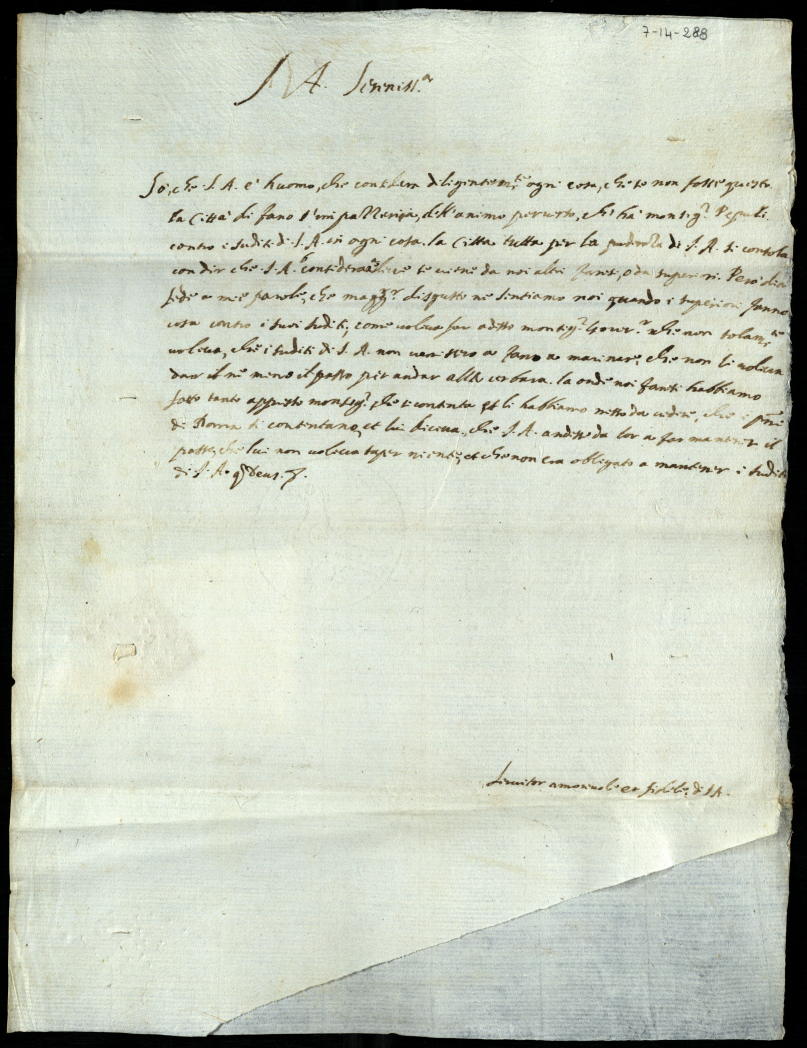 7-14-288
A. Sereniss.ma
So, che S.A. è huomo, che considera diligentem.te ogni cosa, che se non fosse questo
la Città di Fano dell'animo perverso, ch'ha monsig.r Pepuli
contro i suditi di S.A. in ogni cosa. la Città tutta per la di S.A. si consola
con dir che S.A. considerarà se viene da noi altri Fanesi, o da superiori. Però dia
fede a mie parole, che magg.r disgusto ne sentiamo noi quando i superiori fanno
cosa contro i suoi suditi, come voleva far adesso monsig.r Gover.r che non solam.te
voleva, che i suditi di S.A. non venissero a Fano a masinare, che non li voleva
dar il ne meno il passo per andar alla . la onde noi Fanesi habbiamo
fatto tanto appresso monsig.r che si contenta et li habbiamo messo da vedere, che i
di Roma si contentano, et lui diceva, che S.A. da lor a far mantener il
passo, che lui non voleva saper niente, et che non era obligato a mantener i suditi
di S.A. q Deus.
Servitor amorevole et fidele di S.A.